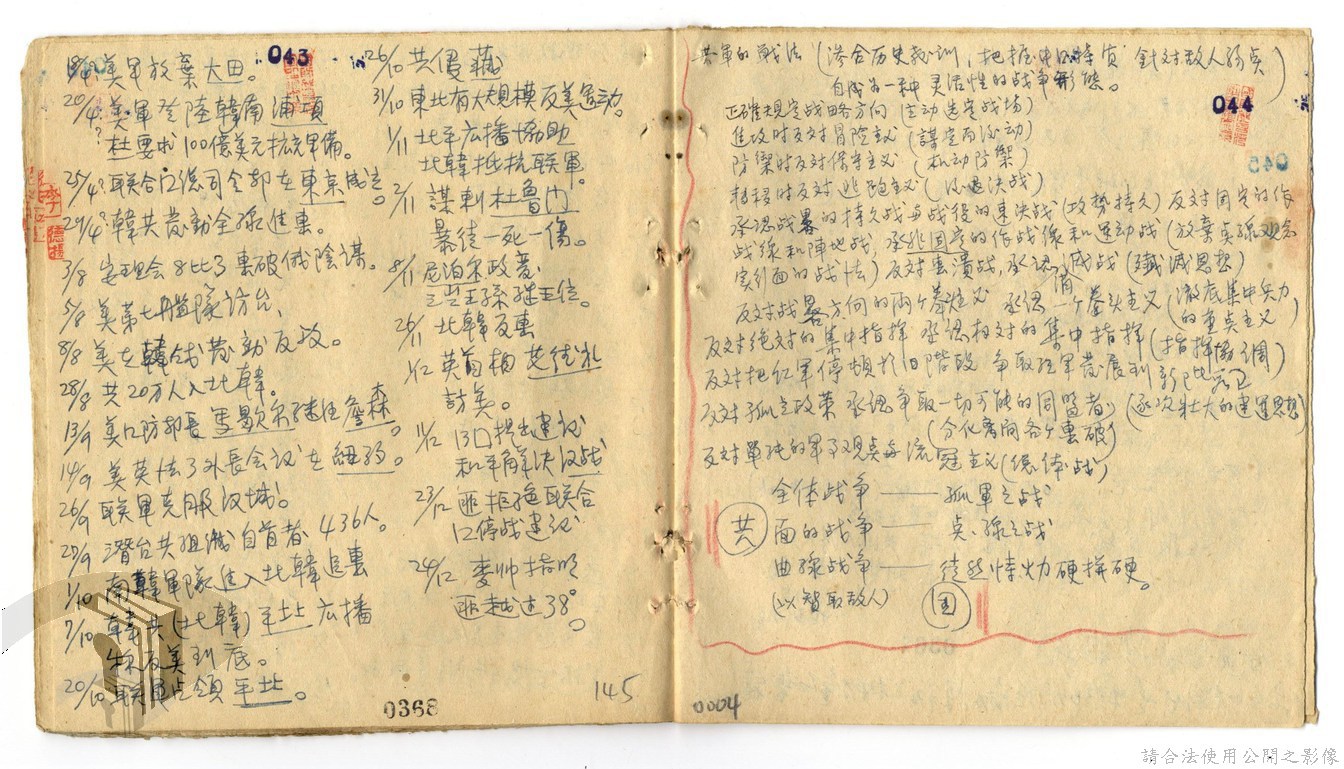 043
美軍放棄大田。
20/4 美軍登陸韓南浦項
杜要求100億美元扩充軍備。
25/4? 联合囗总司令部在東京成立
29/4? 韓共發動全線進襲。
3/8 安理会8比3 击破俄陰謀。
5/8 美第七艦隊访台。
8/8 美在韓战發動反攻。
28/8 共20万人入北韓。
13/9 美囗防部長馬歇尔继任詹森。
14/9 美英法3外長会议在紐約。
26/9 联軍克服汉城。
27/9 潛台共组織自首者436人。
1/10 南韓軍隊進入北韓追襲
7/10 韓共(北韓)平壤広播
反美到底。
20/10 联軍占領平壤。
0368
26/10 共侵藏
31/10 東北有大規模反美運动。
1/11 北平広播協助
北韓抵抗联軍。
2/11 謀刺杜魯門
暴徒一死一傷。
8/11 尼泊尔政变
三岁王孫继王位。
26/11 北韓反襲
1/12 英首相艾德礼
訪美。
11/12 13囗提出建议
和平解决汉战
23/12 匪拒绝联合
囗停战建议
24/12 麥帅指明
匪越过38°。
145
李德揚
044
共軍的战法 (湊合历史教訓,把握中囗特质 針对敌人弱点
自成为一种灵活性的战争形態。)
正確規定战略方向 (主动选定战场)
進攻时反对冒险主义 (謀定而后动)
防禦时反对保守主义 (机动防禦)
轉移时反对逃跑主义 (后退决战)
承認战畧的持久战与战役的速决战(攻勢持久) 反对固定的作
战線和陣地战,承認固定的作战線和运动战(放棄点線观念
实行面的战法) 反对击潰战,承認消滅战(殲滅思想)
反对战畧方向的两个拳主义 承認一个拳头主义 (澈底集中兵力
的重点主义)
反对绝对的集中指揮 承認相对的集中指揮(指揮協調)
反对把红軍停頓於旧階段 争取红軍發展到新階段
反对孤立政策 承認争取一切可能的同盟者 (逐次壮大的建軍思想)
(分化離间各个击破)
反对單纯的軍事观点与流寇主义(总体战)
全体战争 —— 孤軍之战
共 面的战争 —— 点、線之战
曲線战争 —— 徒然恃火力硬拼硬。
(以智取敌人) 囯
0004
045
請合法使用公開之影像